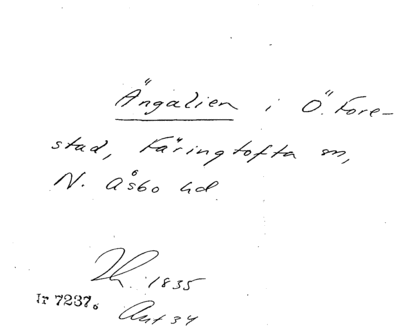 Ängalien i Ö. Fore-
stad, Färingtofta sn,
N. Åsbo hd
1835
Nr 7237
Ant 34